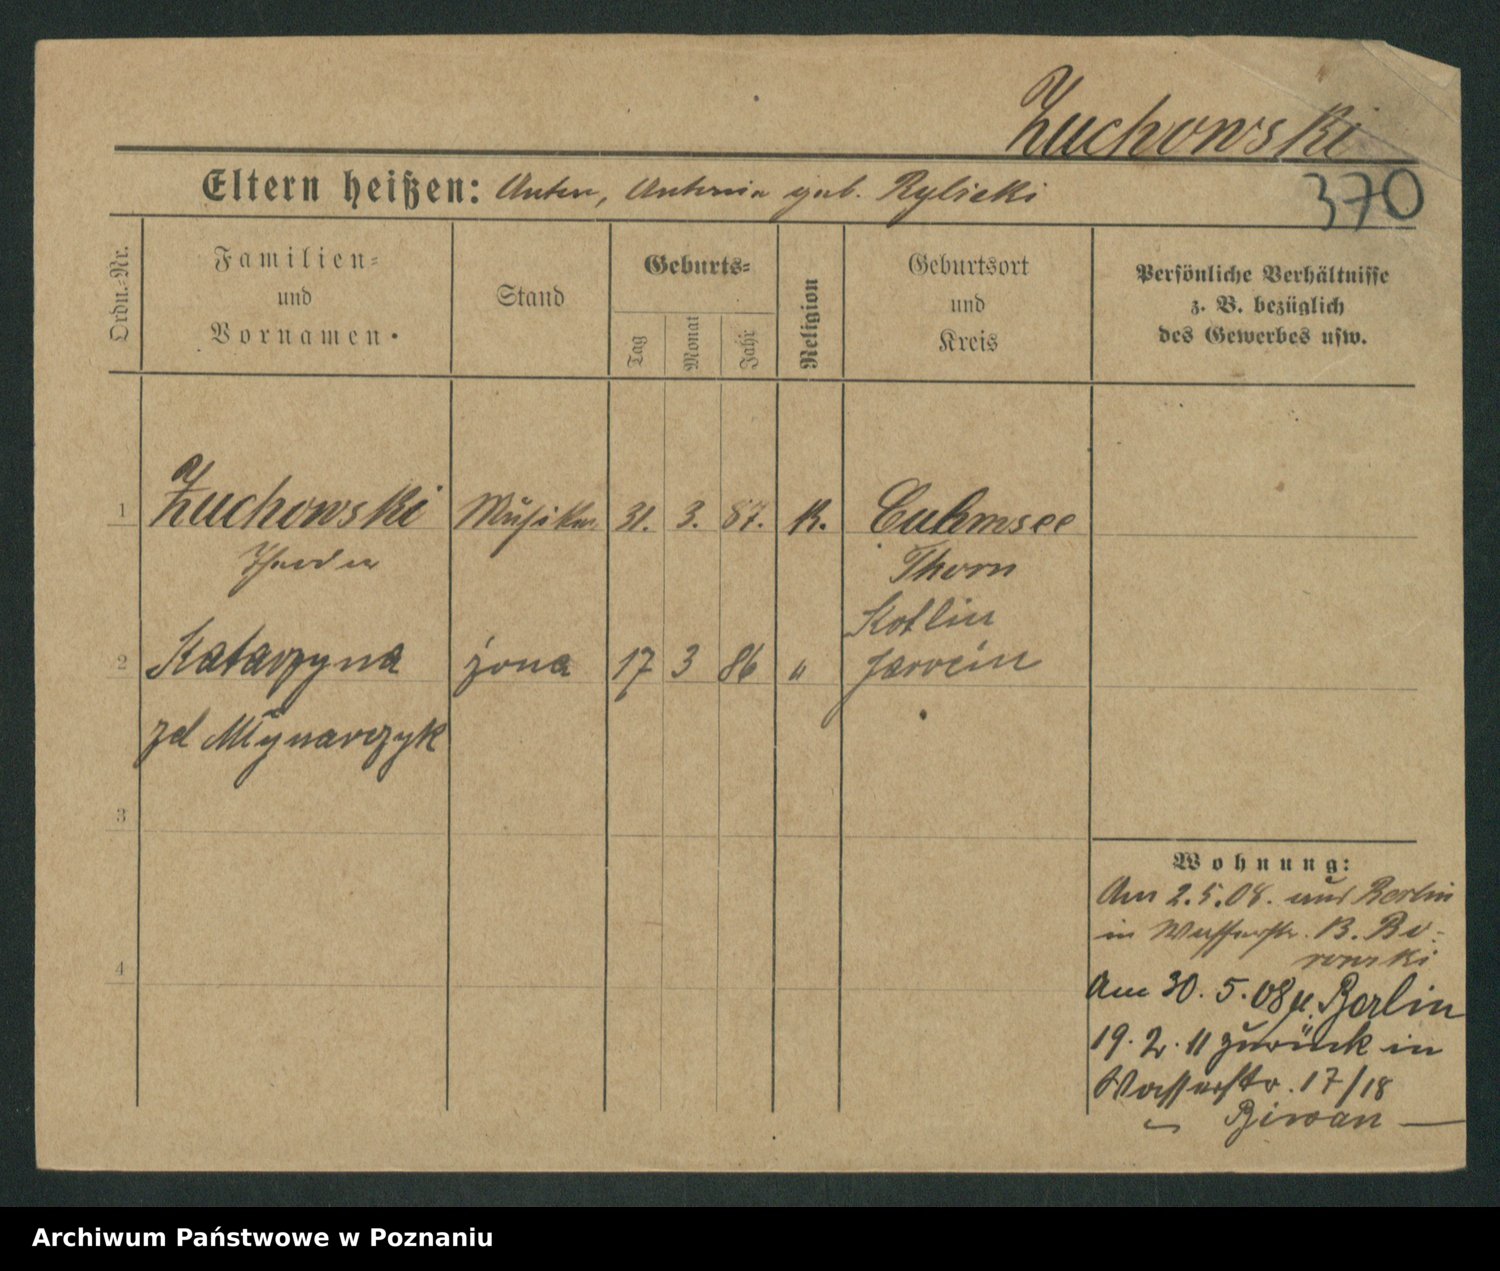 Zuchowski
Eltern heißen: Anton, Antonia geb. Rylicki
370
Ordn.-Nr.
Familien-
und
Vornamen.
Stand
Geburts-
Tag
Monat
Jahr
Religion
Geburtsort
und
Kreis
Persönliche Verhältnisse
z. B. bezüglich
des Gewerbes usw.
1 Zuchowski Musiker 31. 3. 87. K. Culmsee
Theodor Thorn
Kotlin
2 Katarzyna żona 17 3 86 " Jarocin
zd Młynarczyk
3
Wohnung:
Am 2.5.08. aus Berlin
in Wasserstr. B.
4
Am 30.5.08 n. Berlin
19.2.11 zurück in
Wasserstr. 17/18